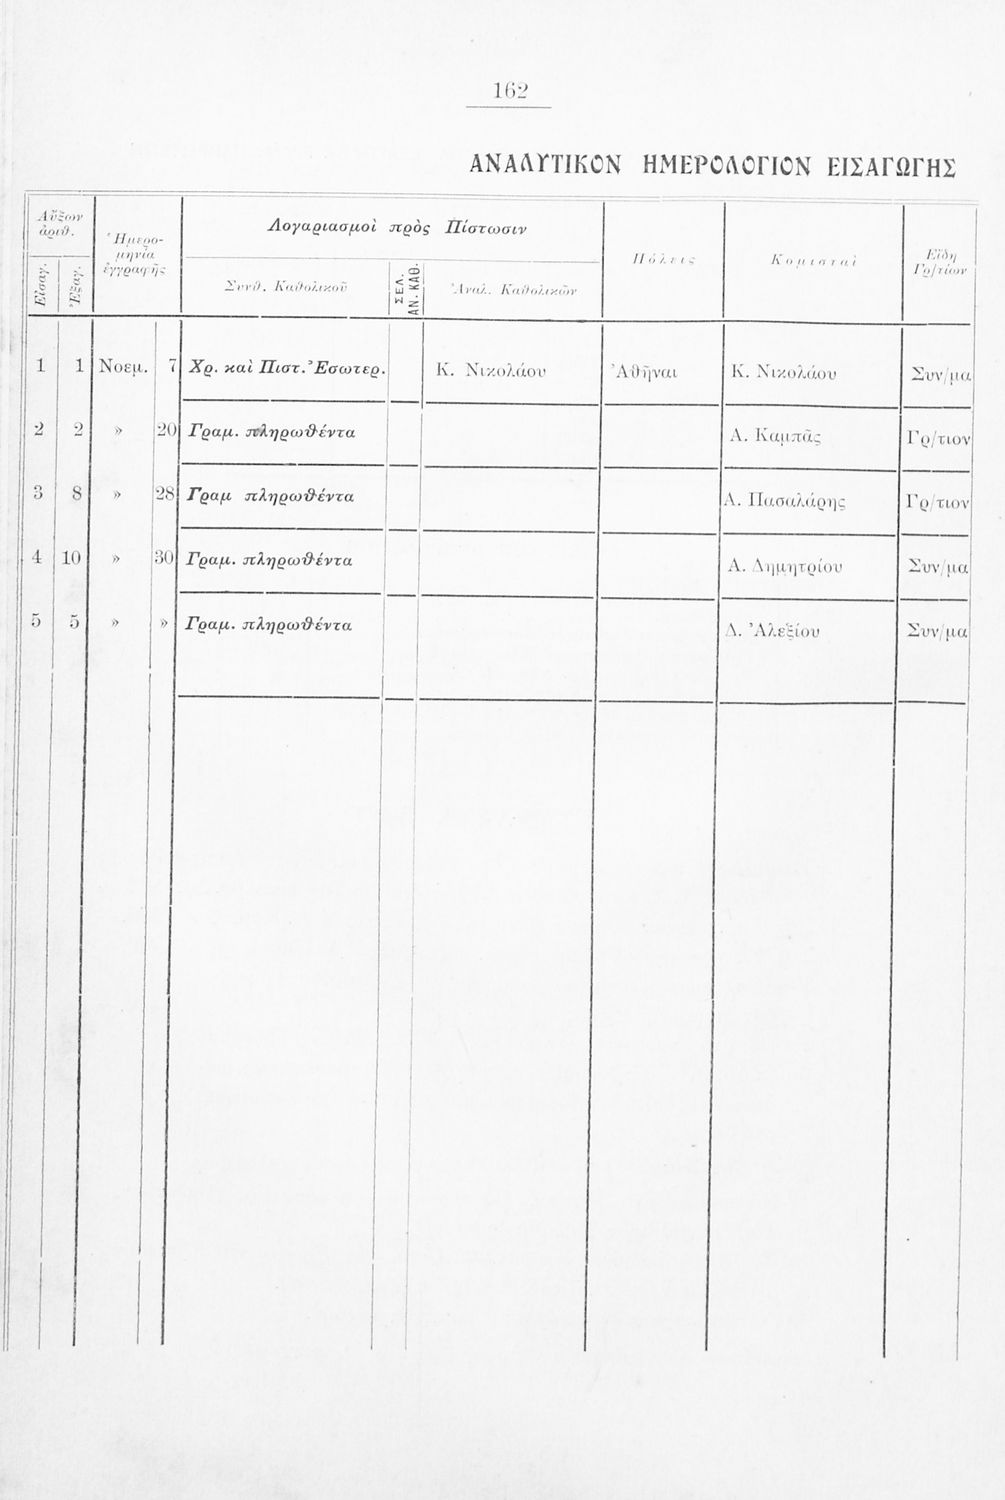 162
ΑΝΑΛΥΤΙΚΟΝ ΗΜΕΡΟΛΟΓΙΟΝ ΕΙΣΑΓΩΓΗΣ
Αὔξων ἀριθ.
Εἰσαγ.
Ἐξαγ.
Ἡμερομηνία ἐγγραφῆς
Λογαριασμοὶ πρὸς Πίστωσιν
Συνθ. Καθολικοῦ
ΣΕΛ. ΑΝ. ΚΑΘ.
Ἀναλ. Καθολικῶν
Πόλεις
Κομισταὶ
Εἴδη Γρ/τίων
1 1 Νοεμ. 7 Χρ. καὶ Πιστ. Ἐσωτερ. Κ. Νικολάου Ἀθῆναι Κ. Νικολάου Συν/μα
2 2 » 20 Γραμ. πληρωθέντα Α. Καμπᾶς Γρ/τιον
3 8 » 28 Γραμ πληρωθέντα Α. Πασαλάρης Γρ/τιον
4 10 » 30 Γραμ. πληρωθέντα Α. Δημητρίου Συν/μα
5 5 » » Γραμ. πληρωθέντα Δ. Ἀλεξίου Συν/μα